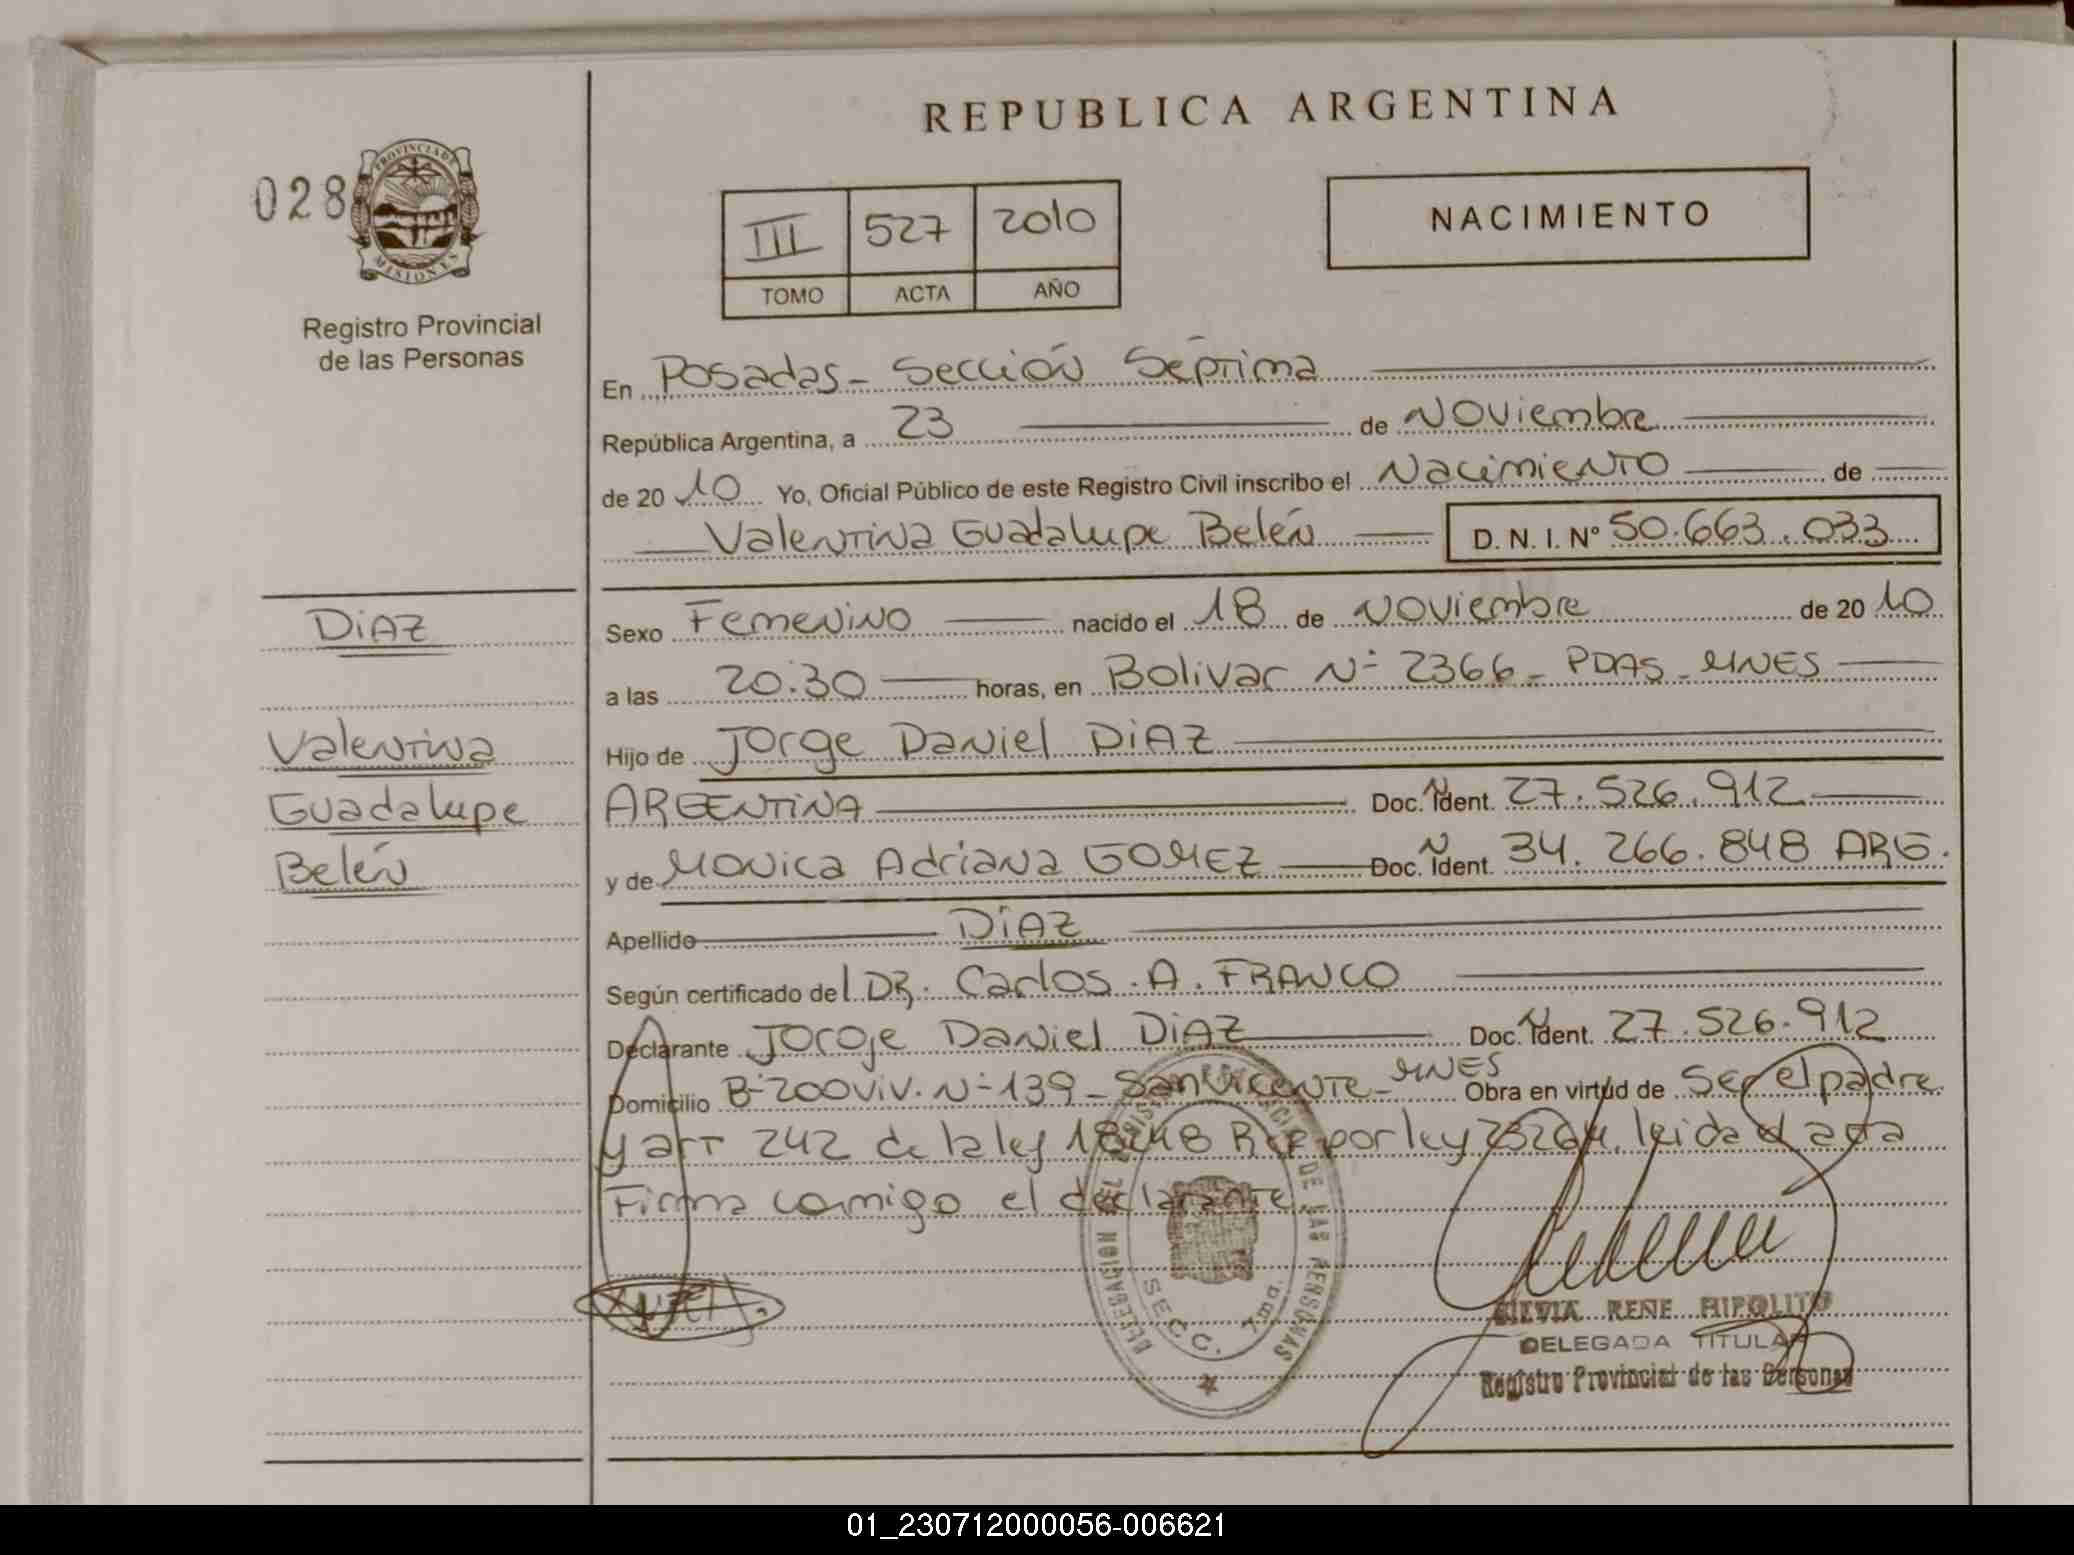 REPUBLICA ARGENTINA
028
PROVINCIA DE
MISIONES
Registro Provincial
de las Personas
III 527 2010
TOMO ACTA AÑO
NACIMIENTO
En Posadas - Sección Séptima
República Argentina, a 23 de Noviembre
de 2010 Yo, Oficial Público de este Registro Civil inscribo el Nacimiento de
Valentina Guadalupe Belén D. N. I. N° 50.663.033
DiAZ
Valentina
Guadalupe
Belén
Sexo Femenino nacido el 18 de Noviembre de 2010
a las 20:30 horas, en Bolivar N° 2366 - PDAS - MNES
Hijo de Jorge Daniel DiAZ
ARGENTINA Doc. Ident. 27.526.912
y de Monica Adriana GOMEZ Doc. Ident. 34.266.848 ARG.
Apellido DÍAZ
Según certificado del DR. Carlos A. FRANCO
Declarante Jorge Daniel DiAZ Doc. Ident. 27.526.912
Domicilio B° 200 viv. N° 139 - San Vicente - MNES Obra en virtud de Ser el padre
y art 242 de la ley 18248 por ley leida el acta
Firma comigo el declarante.
DELEGACION DE LAS PERSONAS
SECC. 7ma.
SILVIA RENE HIPOLITO
DELEGADA TITULAR
Registro Provincial de las Personas
01_230712000056-006621